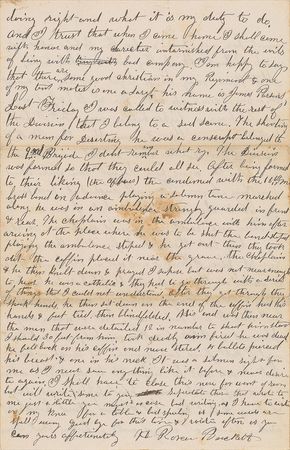 doing right and what it is my duty to do,
and I trust that when I come home I shall come
with honor and my character untarnished from the evils
of being with bad company. I am happy to say
that there are some good christian in my Regiment & one
of my tent mates is one a sargt his name is James
Last Friday I was called to witness with the rest of
the Division that I belong to a sad scene. The shooting
of a man for Desertion he was a conscript belonged to
the 2nd Brigade I dont what regt. The Division
was formed so that they could all see. After being formed
to their liking the condemned with the
guard band by playing a solemn tune, marched
along, he was in an ambulance strongly guarded in front
& rear, The Chaplain was in the ambulance with him after
ariving at the place where he was to be shot the band stoped
playing the ambulance stoped & he got out then they took
out the coffin placed it near the grave, the Chaplain
& he then knelt down & prayed I supose but was not near enough
to hear. he was a catholic & they had to go through with a series
of things that I could not understand after they got through they
shook hands, he then set down on the end of the coffin tied his
hands & feet tied, then blindfolded, and then
the men that were detailed 12 in number to shoot him stood
I should so feet from him, took deadly aim fire! he was dead
he fell back on his coffin and never stired, 4 bullets pierced
his breast & one in his neck It was a solemn sight for
me as I never saw any thing like it before & never desire
to again, I shall have to close this now for want of room
but will write some to you separately then that wrote to
me just a little you must excuse bad writing as I have to write
on my knee for a table & bad spelling as some words are
spelt wrong good bye for this time & write often as you
can yours affectionately H